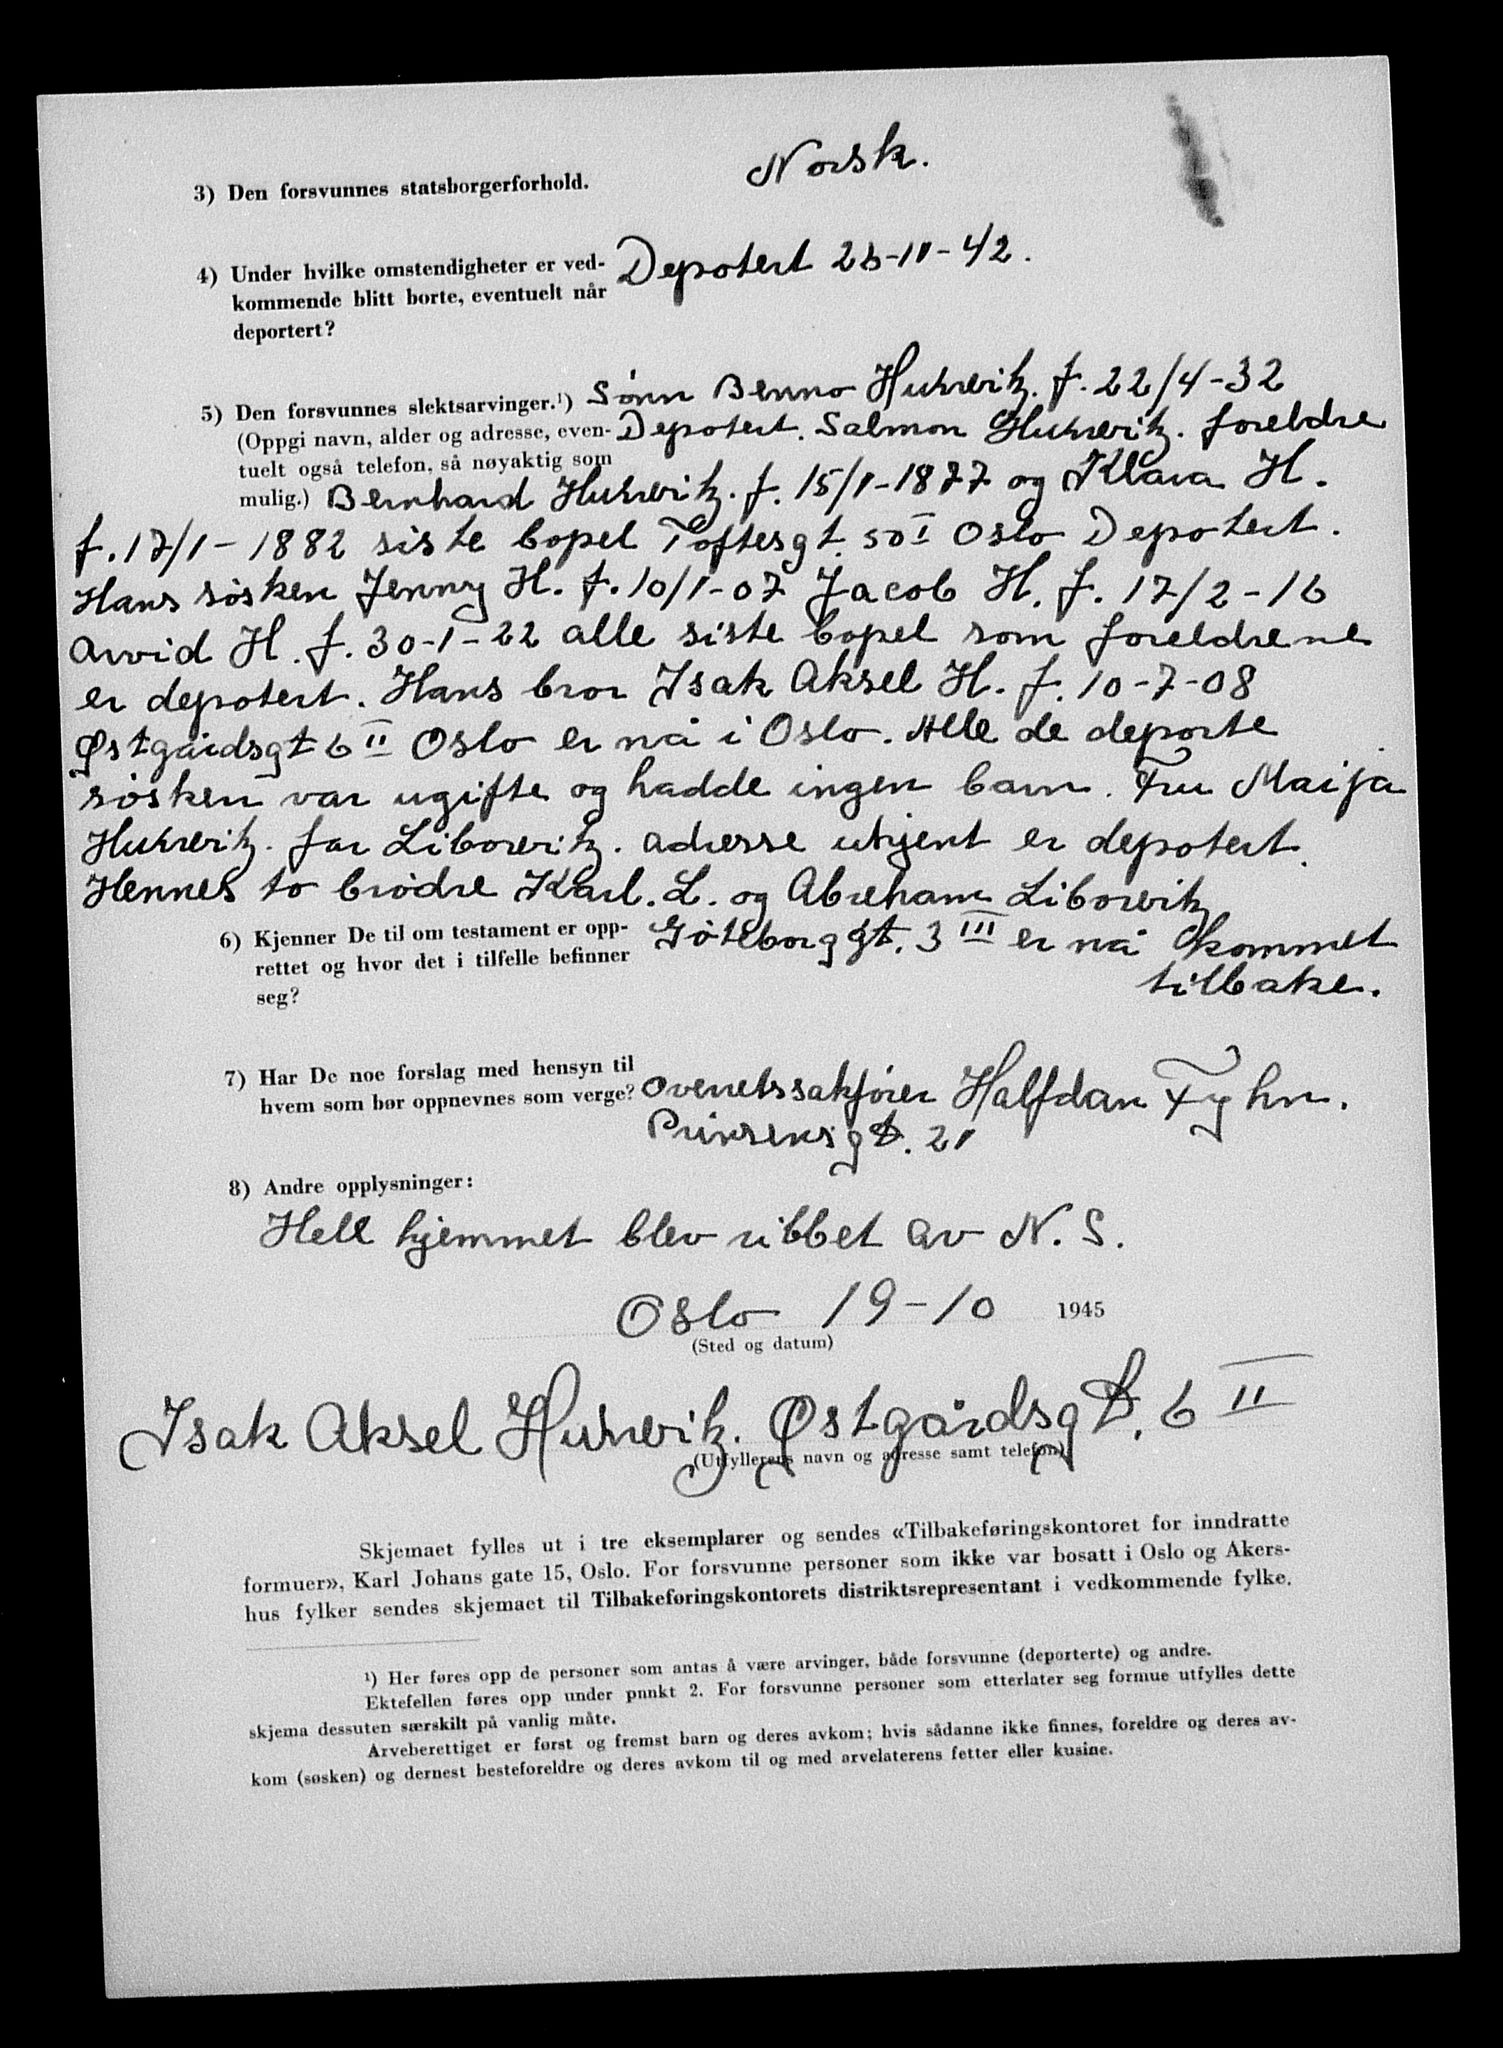 Norsk.
3) Den forsvunnes statsborgerforhold.
4) Under hvilke omstendigheter er ved-
kommende blitt borte, eventuelt når
deportert?
Depotert 26-11-42.
5) Den forsvunnes slektsarvinger.¹)
(Oppgi navn, alder og adresse, even-
tuelt også telefon, så nøyaktig som
mulig.)
Sønn Benno Hurwitz. f. 22/4-32
Depotert. Salmon Hurwitz. foreldre
Bernhard Hurwitz. f. 15/1-1877 og Klara H.
f. 17/1-1882 siste bopel Toftesgt. 50 I Oslo Depotert.
Hans søsken Jenny H. f. 10/1-07 Jacob H. f. 17/2-16
Arvid H. f. 30-1-22 alle siste bopel som foreldrene
er depotert. Hans bror Isak Aksel H. f. 10-7-08
Østgårdsgt 6 II Oslo er nå i Oslo. Alle de deporte
søsken var ugifte og hadde ingen barn. Fru Maija
Hurwitz. far Liborwitz. adresse ukjent er depotert.
Hennes to brødre Karl. L. og Abreham Liborwitz
Gøteborggt. 3 III er nå kommet
tilbake.
6) Kjenner De til om testament er opp-
rettet og hvor det i tilfelle befinner
seg?
7) Har De noe forslag med hensyn til
hvem som bør oppnevnes som verge?
Overretssakfører Halfdan Fyhn.
Prinsensgt. 21
8) Andre opplysninger:
Hele hjemmet blev ribbet av N. S.
Oslo 19-10 1945
(Sted og datum)
Isak Aksel Hurwitz. Østgårdsgt. 6 II
(Utfyllerens navn og adresse samt telefon)
Skjemaet fylles ut i tre eksemplarer og sendes «Tilbakeføringskontoret for inndratte
formuer», Karl Johans gate 15, Oslo. For forsvunne personer som ikke var bosatt i Oslo og Akers-
hus fylker sendes skjemaet til Tilbakeføringskontorets distriktsrepresentant i vedkommende fylke.
¹) Her føres opp de personer som antas å være arvinger, både forsvunne (deporterte) og andre.
Ektefellen føres opp under punkt 2. For forsvunne personer som etterlater seg formue utfylles dette
skjema dessuten særskilt på vanlig måte.
Arveberettiget er først og fremst barn og deres avkom; hvis sådanne ikke finnes, foreldre og deres av-
kom (søsken) og dernest besteforeldre og deres avkom til og med arvelaterens fetter eller kusine.